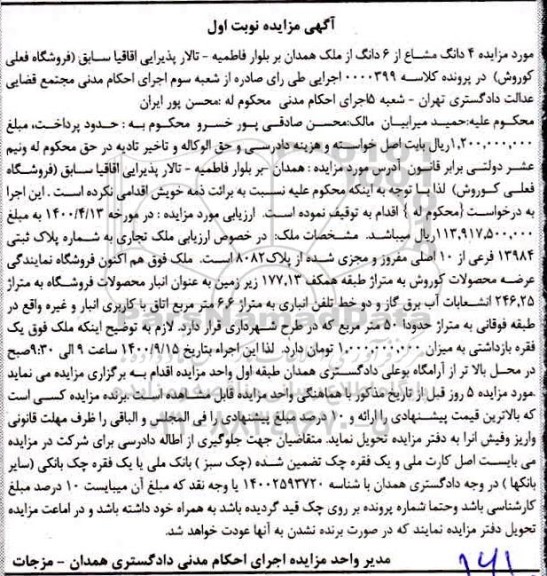 آگهی مزایده نوبت اول
مورد مزایده ۴ دانگ مشاع از ۶ دانگ از ملک همدان بر بلوار فاطمیه - تالار پذیرایی اقاقیا سابق (فروشگاه فعلی
کوروش) در پرونده کلاسه ۰۰۰۰۳۹۹ اجرایی طی رای صادره از شعبه سوم اجرای احکام مدنی مجتمع قضایی
عدالت دادگستری تهران - شعبه ۵اجرای احکام مدنی محکوم له :محسن پور ایران
محکوم علیه:حمید میرابیان مالک:محسن صادقی پور خسرو محکوم به : حدود پرداخت، مبلغ
۱,۲۰۰,۰۰۰,۰۰۰ریال بابت اصل خواسته و هزینه دادرسی و حق الوکاله و تاخیر تادیه در حق محکوم له ونیم
عشر دولتی برابر قانون آدرس مورد مزایده : همدان -بر بلوار فاطمیه - تالار پذیرایی اقاقیا سابق (فروشگاه
فعلی کوروش) لذا با توجه به اینکه محکوم علیه نسبت به برائت ذمه خویش اقدامی نکرده است . این اجرا
به درخواست {محکوم له } اقدام به توقیف نموده است. ارزیابی مورد مزایده : در مورخه ۱۴۰۰/۴/۱۳ به مبلغ
۱۱۳,۹۱۷,۵۰۰,۰۰۰ریال میباشد. مشخصات ملک: در خصوص ارزیابی ملک تجاری به شماره پلاک ثبتی
۱۳۹۸۴ فرعی از ۱۰ اصلی مفروز و مجزی شده از پلاک۸۰۸۲ است. ملک فوق هم اکنون فروشگاه نمایندگی
عرضه محصولات کوروش به متراژ طبقه همکف ۱۷۷,۱۳ زیر زمین به عنوان انبار محصولات فروشگاه به متراژ
۲۴۶,۲۵ انشعابات آب برق گاز و دو خط تلفن انباری به متراژ ۶,۶ متر مربع اتاق با کاربری انبار و غیره واقع در
طبقه فوقانی به متراژ حدودا ۵۰ متر مربع که در طرح شهرداری قرار دارد. لازم به توضیح اینکه ملک فوق یک
فقره بازداشتی به میزان ۱,۰۰۰,۰۰۰,۰۰۰ تومان دارد. لذا این اجراء بتاریخ ۱۴۰۰/۹/۱۵ ساعت ۹ الی ۹:۳۰صبح
در محل بالا تر از آرامگاه بوعلی دادگستری همدان طبقه اول واحد مزایده اقدام به برگزاری مزایده می نماید
مورد مزایده ۵ روز قبل از تاریخ مذکور با هماهنگی واحد مزایده قابل مشاهده است برنده مزایده کسی است
که بالاترین قیمت پیشنهادی را ارائه و ۱۰ درصد مبلغ پیشنهادی را فی المجلس و الباقی را ظرف مهلت قانونی
واریز وفیش انرا به دفتر مزایده تحویل نماید. متقاضیان جهت جلوگیری از اطاله دادرسی برای شرکت در مزایده
می بایست اصل کارت ملی و یک فقره چک تضمین شده (چک سبز ) بانک ملی یا یک فقره چک بانکی (سایر
بانکها ) در وجه دادگستری همدان با شناسه ۱۴۰۰۲۵۹۳۷۲۰ یا وجه نقد که مبلغ آن میبایست ۱۰ درصد مبلغ
کارشناسی باشد وحتما شماره پرونده بر روی چک قید گردیده باشد به همراه خود داشته باشد و در اماعت مزایده
تحویل دفتر مزایده نمایند که در صورت برنده نشدن به آنها عودت خواهد شد.
مدیر واحد مزایده اجرای احکام مدنی دادگستری همدان - مزجات